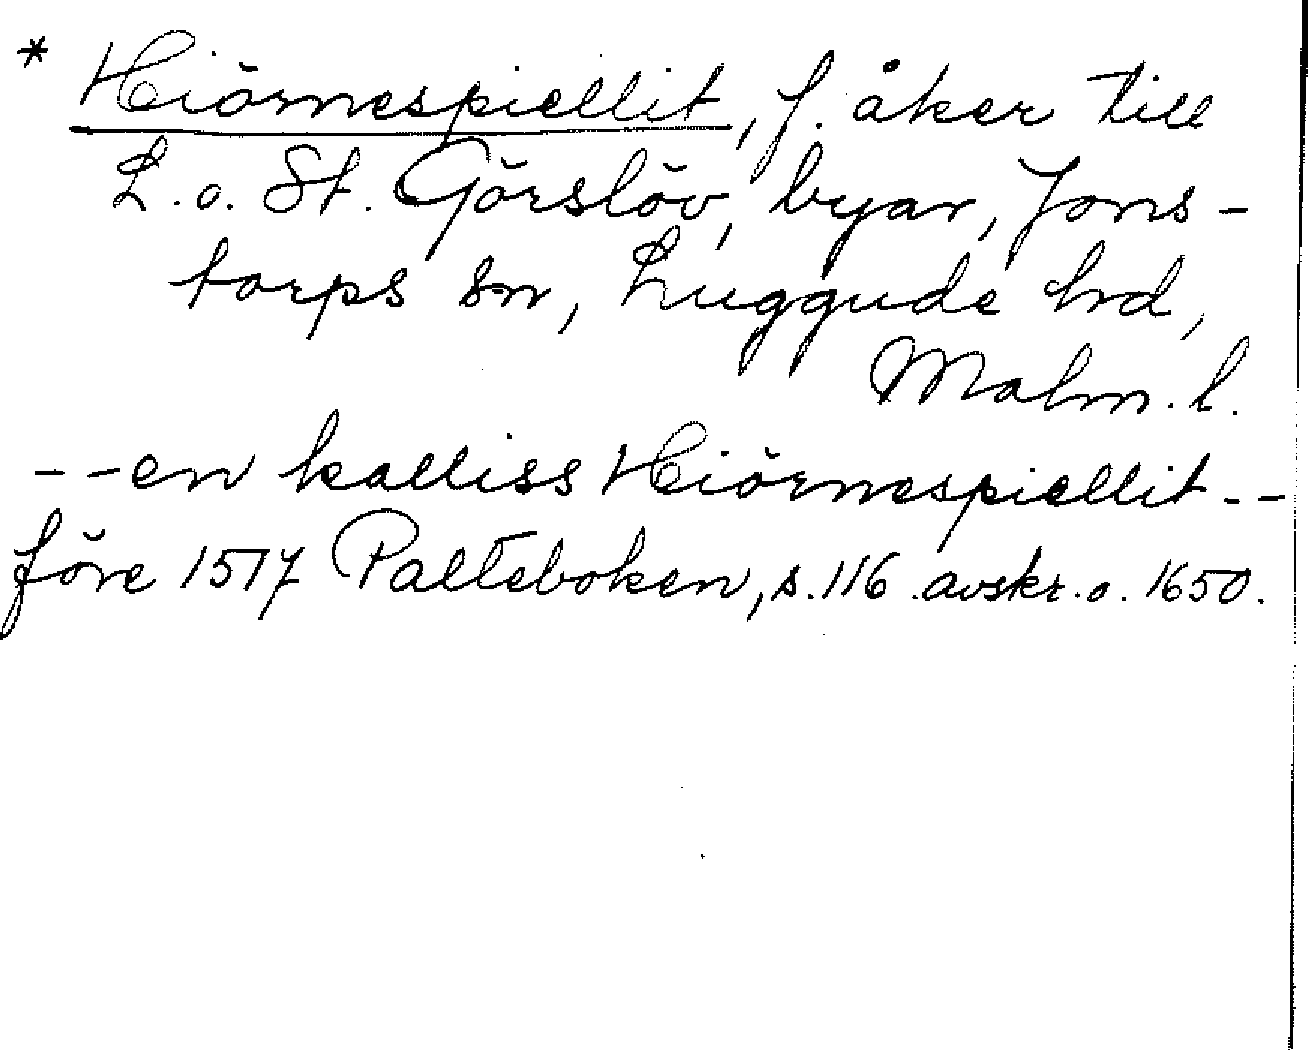 * Hiörnespiellit, f. åker till
L. o. St. Görslöv, byar, Jons-
torps sn, Luggude hd,
Malm. l.
- - en kalliss Hiörnespiellit - -
före 1517 Palteboken, s. 116 avskr. o. 1650.